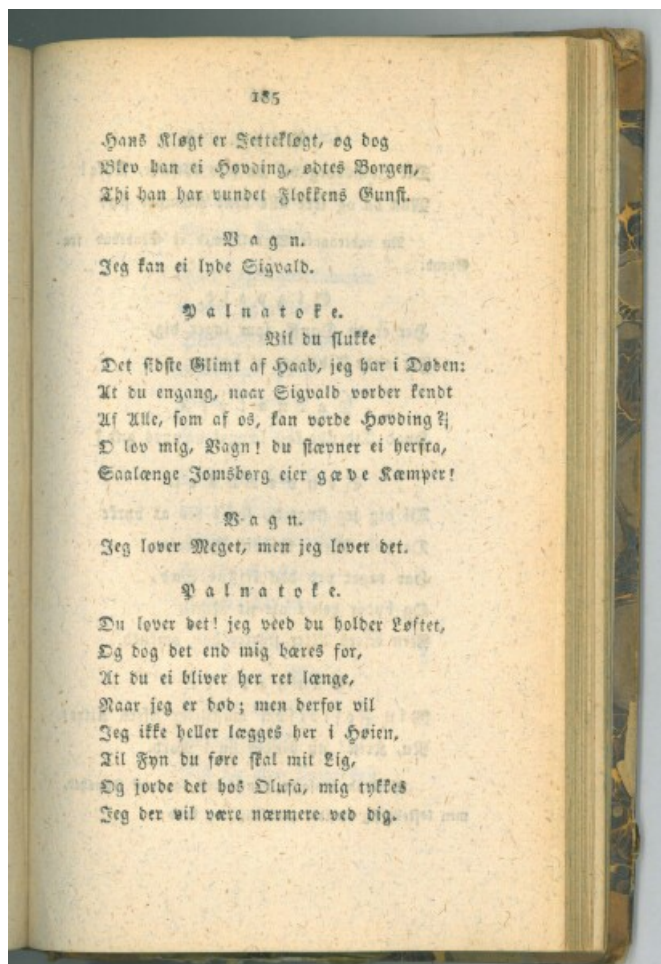 185
Hans Kløgt er Jettekløgt, og dog
Blev han ei Høvding, ødtes Borgen,
Thi han har vundet Flokkens Gunst.
Vagn.
Jeg kan ei lyde Sigvald.
Palnatoke.
Vil du slukke
Det sidste Glimt af Haab, jeg har i Døden:
At du engang, naar Sigvald vorder kendt
Af Alle, som af os, kan vorde Høvding?
O lov mig, Vagn! du stævner ei herfra,
Saalænge Jomsborg eier gæve Kæmper!
Vagn.
Jeg lover Meget, men jeg lover det.
Palnatoke.
Du lover det! jeg veed du holder Løftet,
Og dog det end mig bæres for,
At du ei bliver her ret længe,
Naar jeg er død; men derfor vil
Jeg ikke heller lægges her i Høien,
Til Fyn du føre skal mit Lig,
Og jorde det hos Olufa, mig tykkes
Jeg der vil være nærmere ved dig.